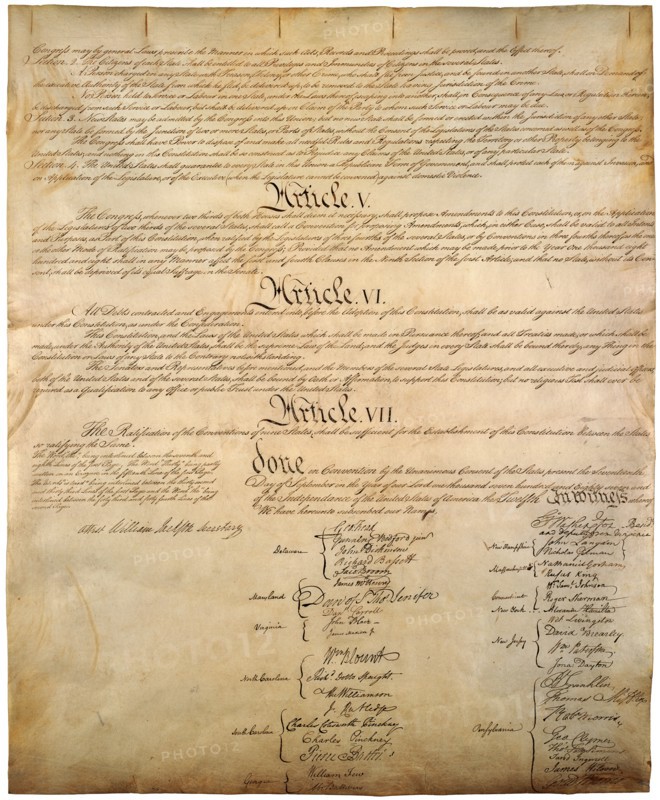 Congress may by general Laws prescribe the Manner in which such Acts, Records and Proceedings shall be proved, and the Effect thereof.
Section. 2. The Citizens of each State shall be entitled to all Privileges and Immunities of Citizens in the several States.
A Person charged in any State with Treason, Felony, or other Crime, who shall flee from Justice, and be found in another State, shall on Demand of
the executive Authority of the State from which he fled, be delivered up, to be removed to the State having Jurisdiction of the Crime.
No Person held to Service or Labour in one State, under the Laws thereof, escaping into another, shall, in Consequence of any Law or Regulation therein,
be discharged from such Service or Labour, but shall be delivered up on Claim of the Party to whom such Service or Labour may be due.
Section. 3. New States may be admitted by the Congress into this Union; but no new State shall be formed or erected within the Jurisdiction of any other State;
nor any State be formed by the Junction of two or more States, or Parts of States, without the Consent of the Legislatures of the States concerned as well as of the Congress.
The Congress shall have Power to dispose of and make all needful Rules and Regulations respecting the Territory or other Property belonging to the
United States; and nothing in this Constitution shall be so construed as to Prejudice any Claims of the United States, or of any particular State.
Section. 4. The United States shall guarantee to every State in this Union a Republican Form of Government, and shall protect each of them against Invasion; and
on Application of the Legislature, or of the Executive (when the Legislature cannot be convened) against domestic Violence.
Article. V.
The Congress, whenever two thirds of both Houses shall deem it necessary, shall propose Amendments to this Constitution, or, on the Application
of the Legislatures of two thirds of the several States, shall call a Convention for proposing Amendments, which, in either Case, shall be valid to all Intents
and Purposes, as Part of this Constitution, when ratified by the Legislatures of three fourths of the several States, or by Conventions in three fourths thereof, as the one
or the other Mode of Ratification may be proposed by the Congress; Provided that no Amendment which may be made prior to the Year One thousand eight
hundred and eight shall in any Manner affect the first and fourth Clauses in the Ninth Section of the first Article; and that no State, without its Con-
sent, shall be deprived of its equal Suffrage in the Senate.
Article. VI.
All Debts contracted and Engagements entered into, before the Adoption of this Constitution, shall be as valid against the United States
under this Constitution, as under the Confederation.
This Constitution, and the Laws of the United States which shall be made in Pursuance thereof; and all Treaties made, or which shall be
made, under the Authority of the United States, shall be the supreme Law of the Land; and the Judges in every State shall be bound thereby, any Thing in the
Constitution or Laws of any State to the Contrary notwithstanding.
The Senators and Representatives before mentioned, and the Members of the several State Legislatures, and all executive and judicial Officers,
both of the United States and of the several States, shall be bound by Oath or Affirmation, to support this Constitution; but no religious Test shall ever be
required as a Qualification to any Office or public Trust under the United States.
Article. VII.
The Ratification of the Conventions of nine States, shall be sufficient for the Establishment of this Constitution between the States
so ratifying the Same.
done in Convention by the Unanimous Consent of the States present the Seventeenth
Day of September in the Year of our Lord one thousand seven hundred and Eighty seven and
of the Independance of the United States of America the Twelfth In witness whereof
We have hereunto subscribed our Names,
attest William Jackson Secretary
Delaware
Geo: Read
Gunning Bedford jun
John Dickinson
Richard Bassett
Jaco: Broom
Maryland
James McHenry
Dan of St Thos Jenifer
Danl Carroll
Virginia
John Blair
James Madison Jr.
North Carolina
Wm Blount
Richd Dobbs Spaight
Hu Williamson
South Carolina
J. Rutledge
Charles Cotesworth Pinckney
Charles Pinckney
Pierce Butler
Georgia
William Few
Abr Baldwin
New Hampshire
John Langdon
Nicholas Gilman
Massachusetts
Nathaniel Gorham
Rufus King
Connecticut
Wm Saml Johnson
Roger Sherman
New York
Alexander Hamilton
New Jersey
Wil: Livingston
David Brearley
Wm Paterson
Jona: Dayton
Pensylvania
B Franklin
Thomas Mifflin
Robt Morris
Geo. Clymer
Thos FitzSimons
Jared Ingersoll
James Wilson
PHOTO12